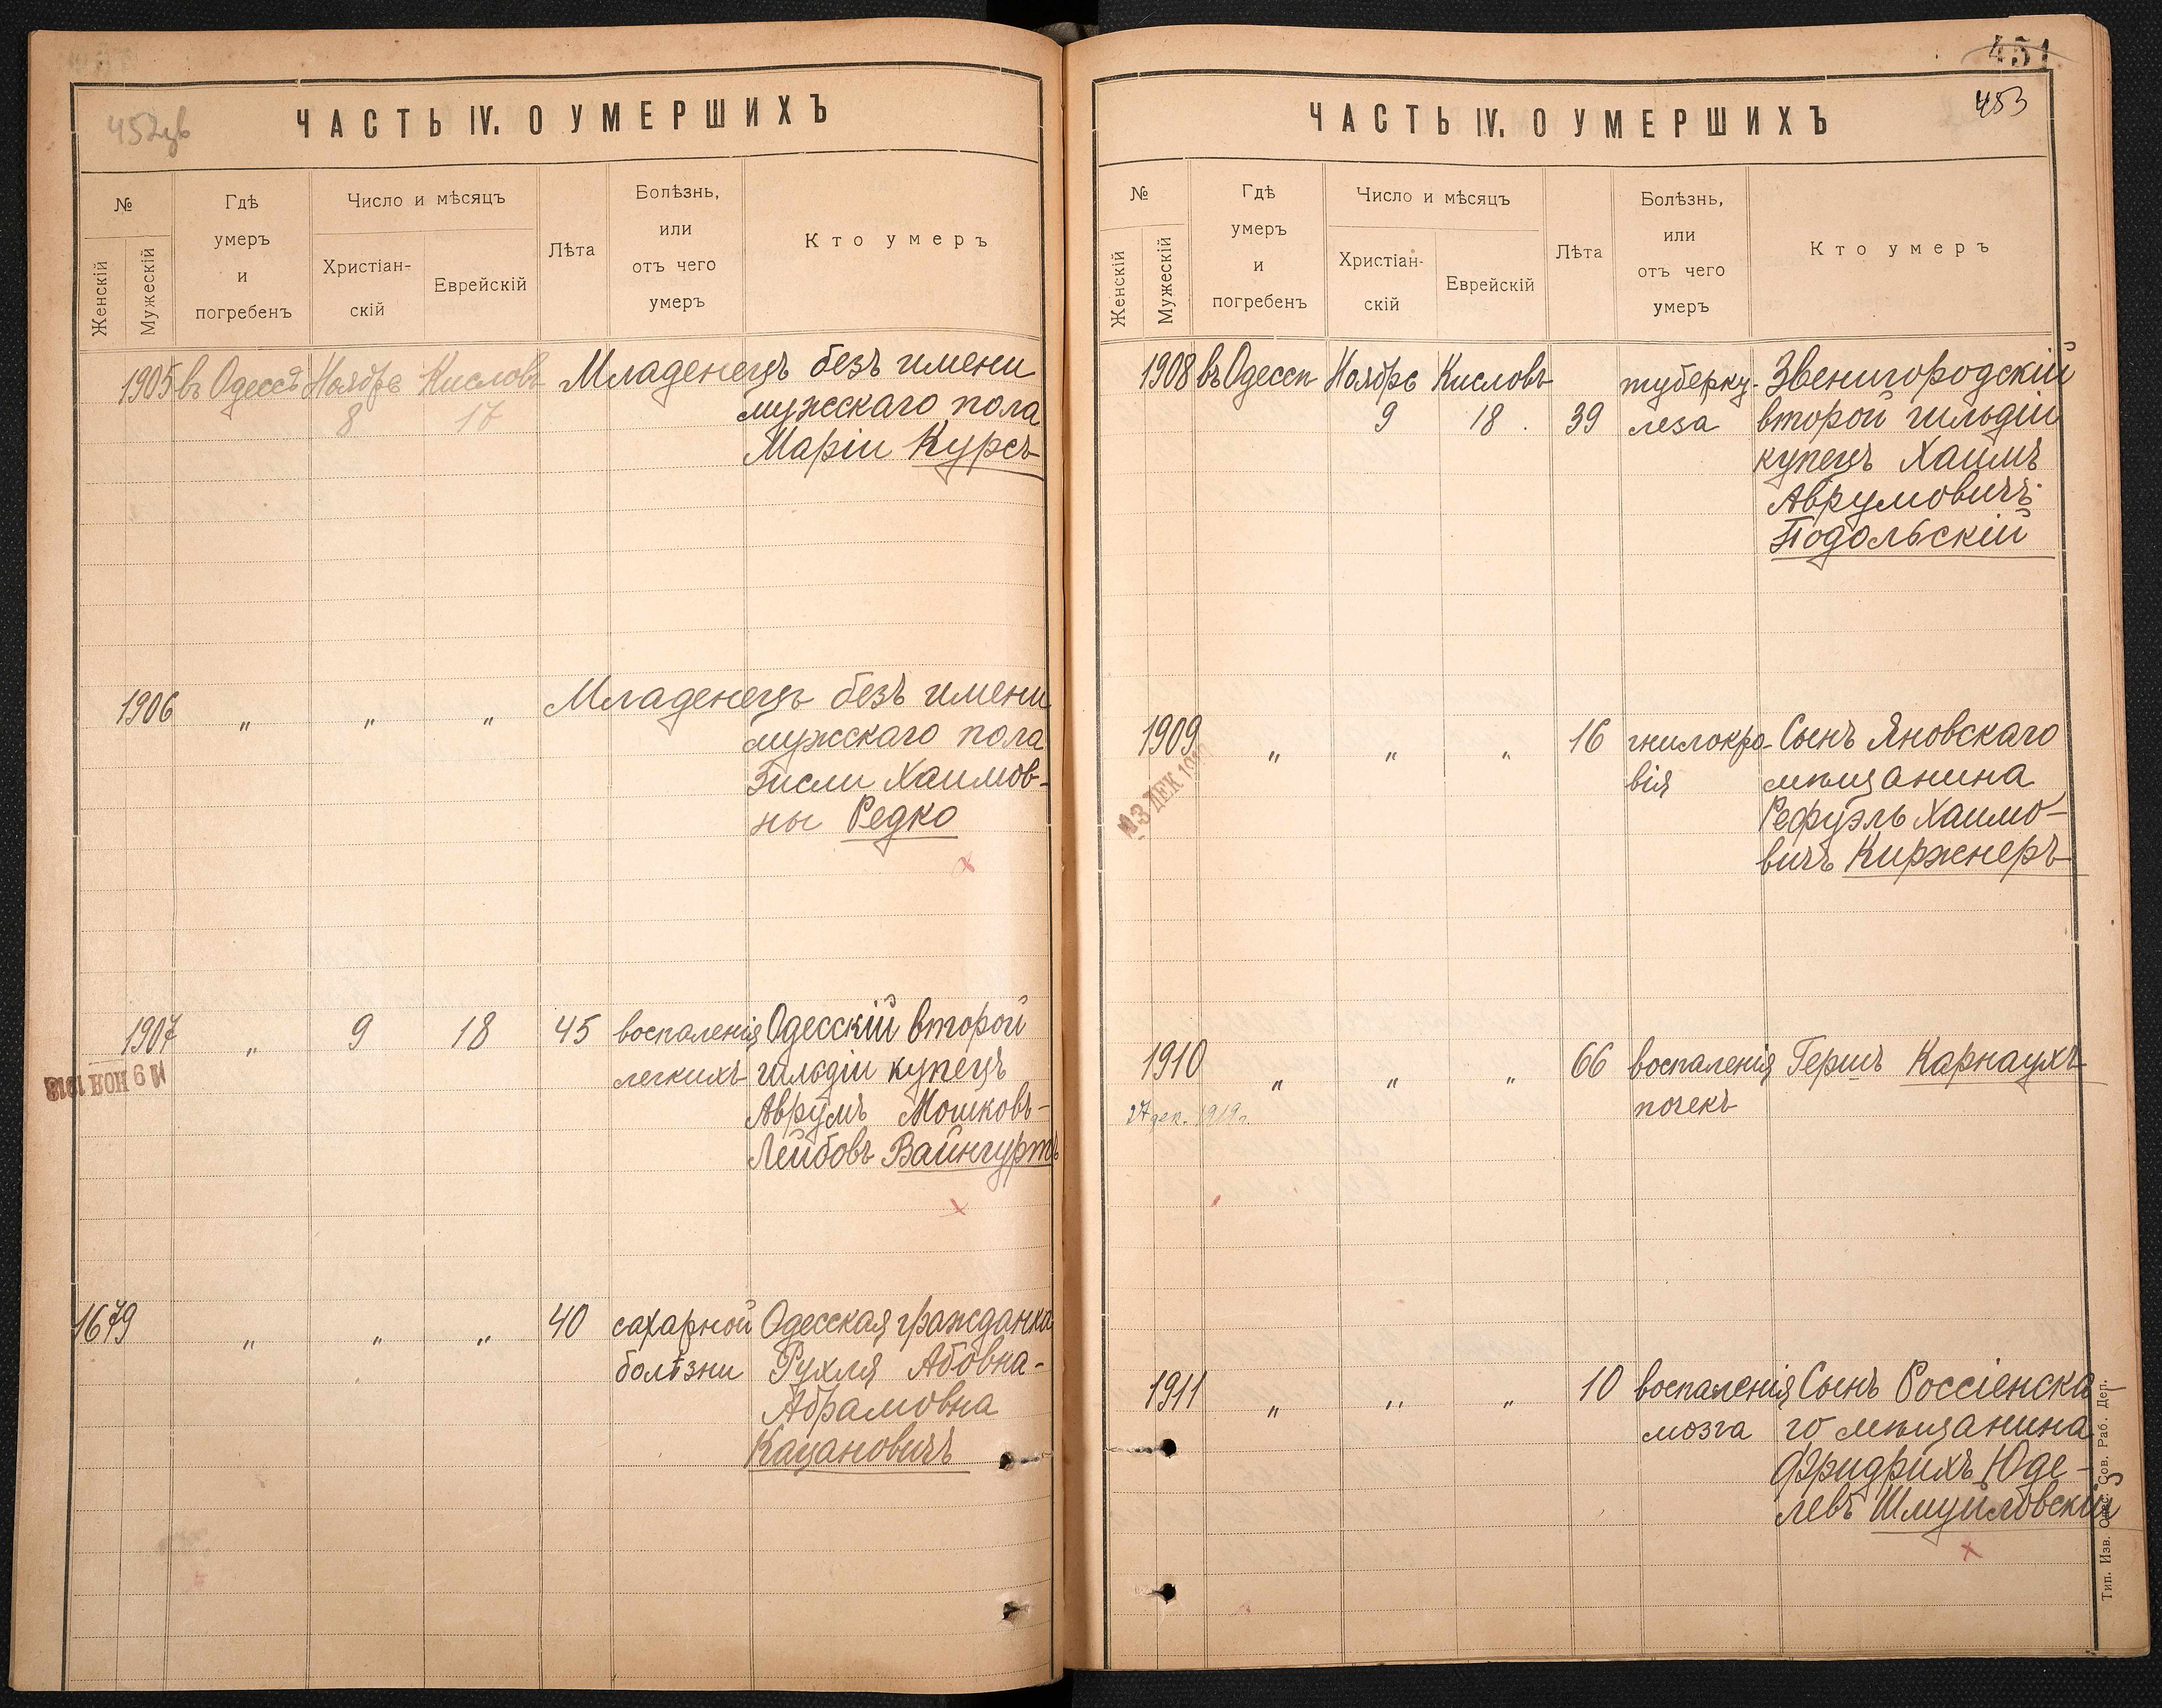 452 зв
ЧАСТЬ IV. О УМЕРШИХЪ
№
Женскій
Мужескій
Гдѣ
умеръ
и
погребенъ
Число и мѣсяцъ
Христіан-
скій
Еврейскій
Лѣта
Болѣзнь,
или
отъ чего
умеръ
Кто умеръ
1905 въ Одессѣ Ноябрь Кисловъ Младенецъ безъ имени
8 17 мужескаго пола
Маріи Курсъ
1906 " " " Младенецъ безъ имени
мужескаго пола
Гисли Хаимов-
ны Редко
1907 " 9 18 45 воспаленія Одесскій второй
легкихъ гильдіи купецъ
9 НОЯ 1918
Аврумъ Мошковъ-
Лейбовъ Вайнгуртъ
1679 " " " 40 сахарной Одесская гражданка
болѣзни Рухля Абовна-
Абрамовна
Кацановичъ
451
453
ЧАСТЬ IV. О УМЕРШИХЪ
№
Женскій
Мужескій
Гдѣ
умеръ
и
погребенъ
Число и мѣсяцъ
Христіан-
скій
Еврейскій
Лѣта
Болѣзнь,
или
отъ чего
умеръ
Кто умеръ
1908 въ Одессѣ Ноябрь Кисловъ туберку- Звенигородскій
9 18 39 леза второй гильдіи
купецъ Хаимъ
Аврумовичъ
Подольскій
1909 " " " 16 гнилокро- Сынъ Яновскаго
вія мѣщанина
3 ДЕК
Рефуэль Хаимо-
вичъ Киржнеръ
1910 " " " 66 воспаленія Гершъ Карнаухъ
27 дек. 1919 г. почекъ
1911 " " " 10 воспаленія Сынъ Россіенска-
мозга го мѣщанина
Фридрихъ Юде-
левъ Шмуйловскій
Тип. Изв. Одес. Сов. Раб. Деп.